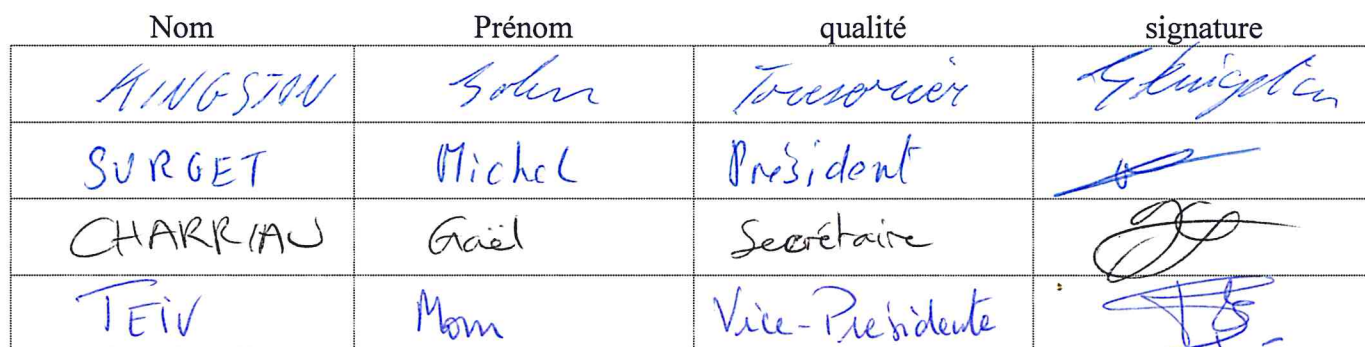 Nom Prénom qualité signature
KINGSTON John Tresorier
SURGET Michel Président
CHARRIAU Gaël Secrétaire
TEIV Mom Vice-Présidente